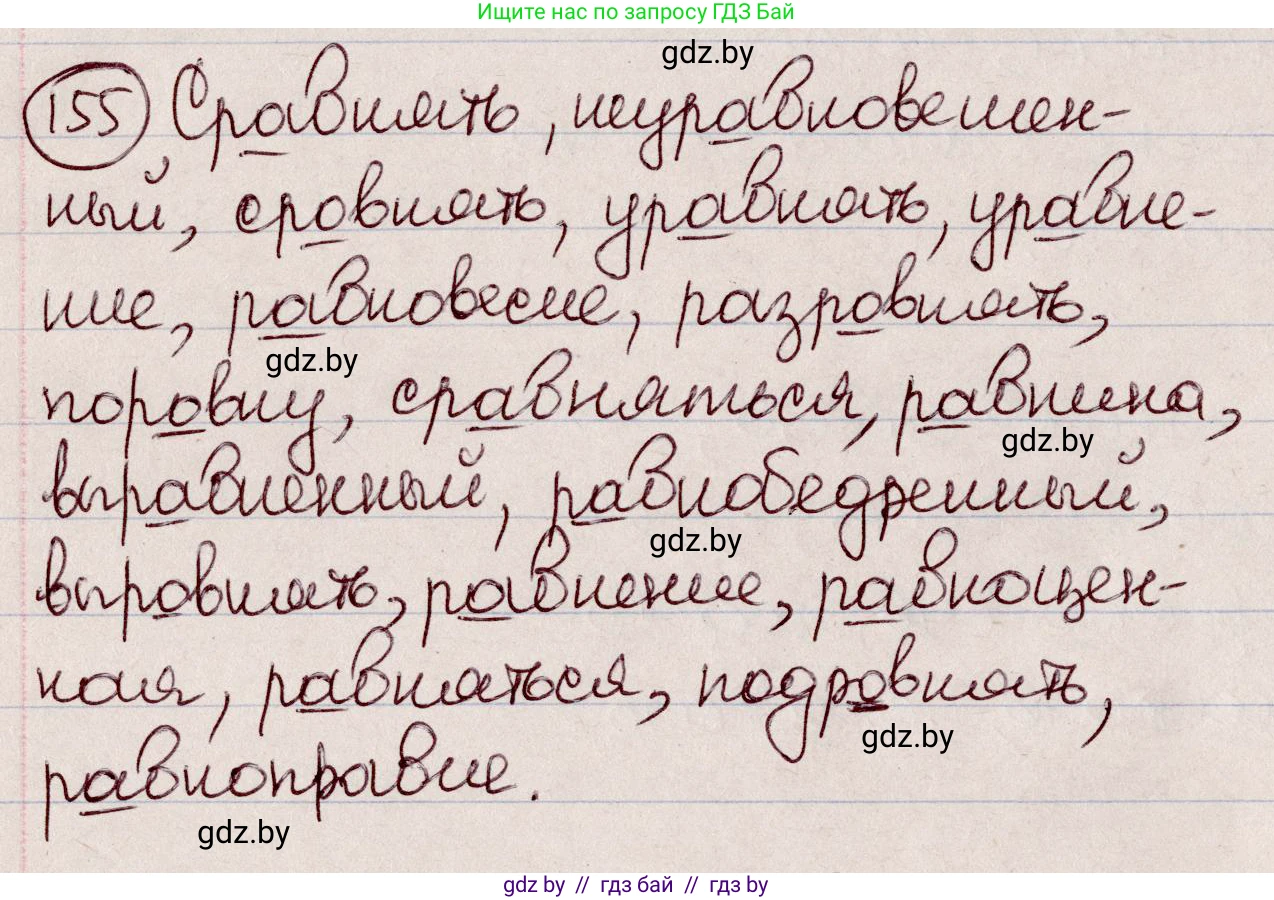 Ищите нас по запросу ГДЗ Бай
gdz.by
155 Сравнять, неуравновешен-
ный, сровнять, уравнять, уравне-
ние, равновесие, разровнять,
gdz.by
поровну, сравняться, равнина,
gdz.by
выравненный, равнобедренный,
gdz.by
выровнять, равнение, равноцен-
ная, равняться, подровнять,
gdz.by
равноправие.
gdz.by
gdz by // гдз бай // гдз by